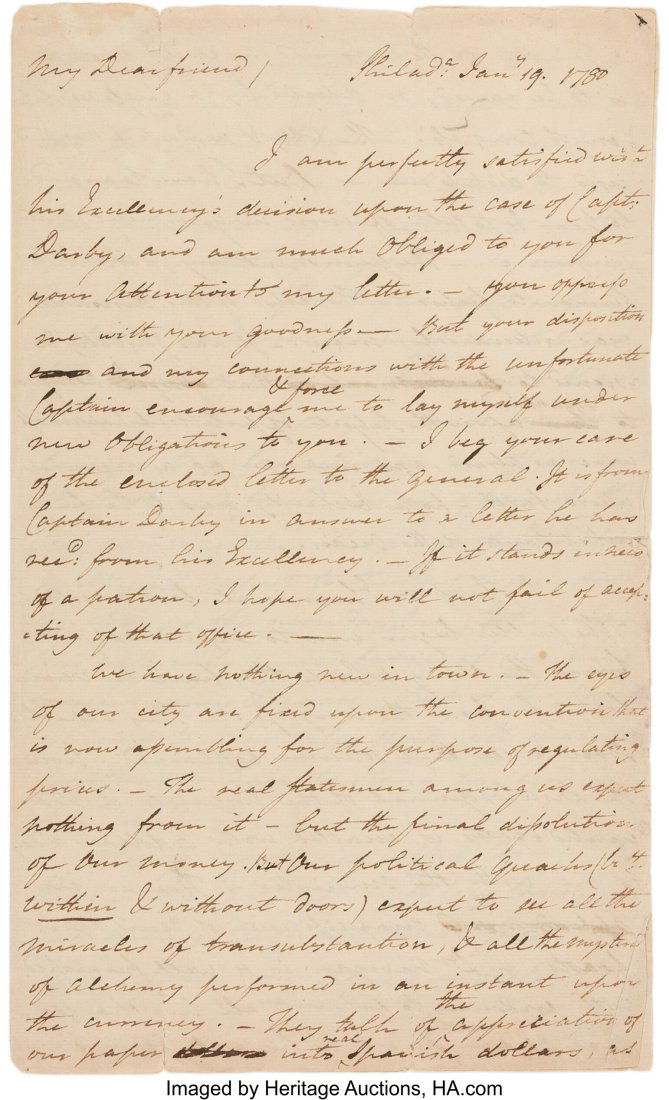 My Dear friend / Philad.ᵃ Janʸ 19. 1780
I am perfectly satisfied with
his Excellency's decision upon the case of Capt:
Darby, and am much Obliged to you for
your Attention to my letter. — You oppress
me with your goodness — But your disposition
and my connections with the unfortunate
Captain encourage & force me to lay myself under
new Obligations to you. — I beg your care
of the enclosed letter to the General. It is from
Captain Darby in answer to a letter he has
recᵈ: from his Excellency. — If it stands in need
of a patron, I hope you will not fail of accep-
-ting of that office. —
We have nothing new in town. — The eyes
of our city are fixed upon the convention that
is now assembling for the purpose of regulating
prices. — The real Statesmen among us expect
nothing from it — but the final dissolution
of Our money. But Our political Quacks (both
within & without doors) expect to see all the
miracles of transubstantion, & all the mysteries
of Alchemy performed in an instant upon
the currency. — They talk of the appreciation of
our paper into real Spanish dollars, as
Imaged by Heritage Auctions, HA.com